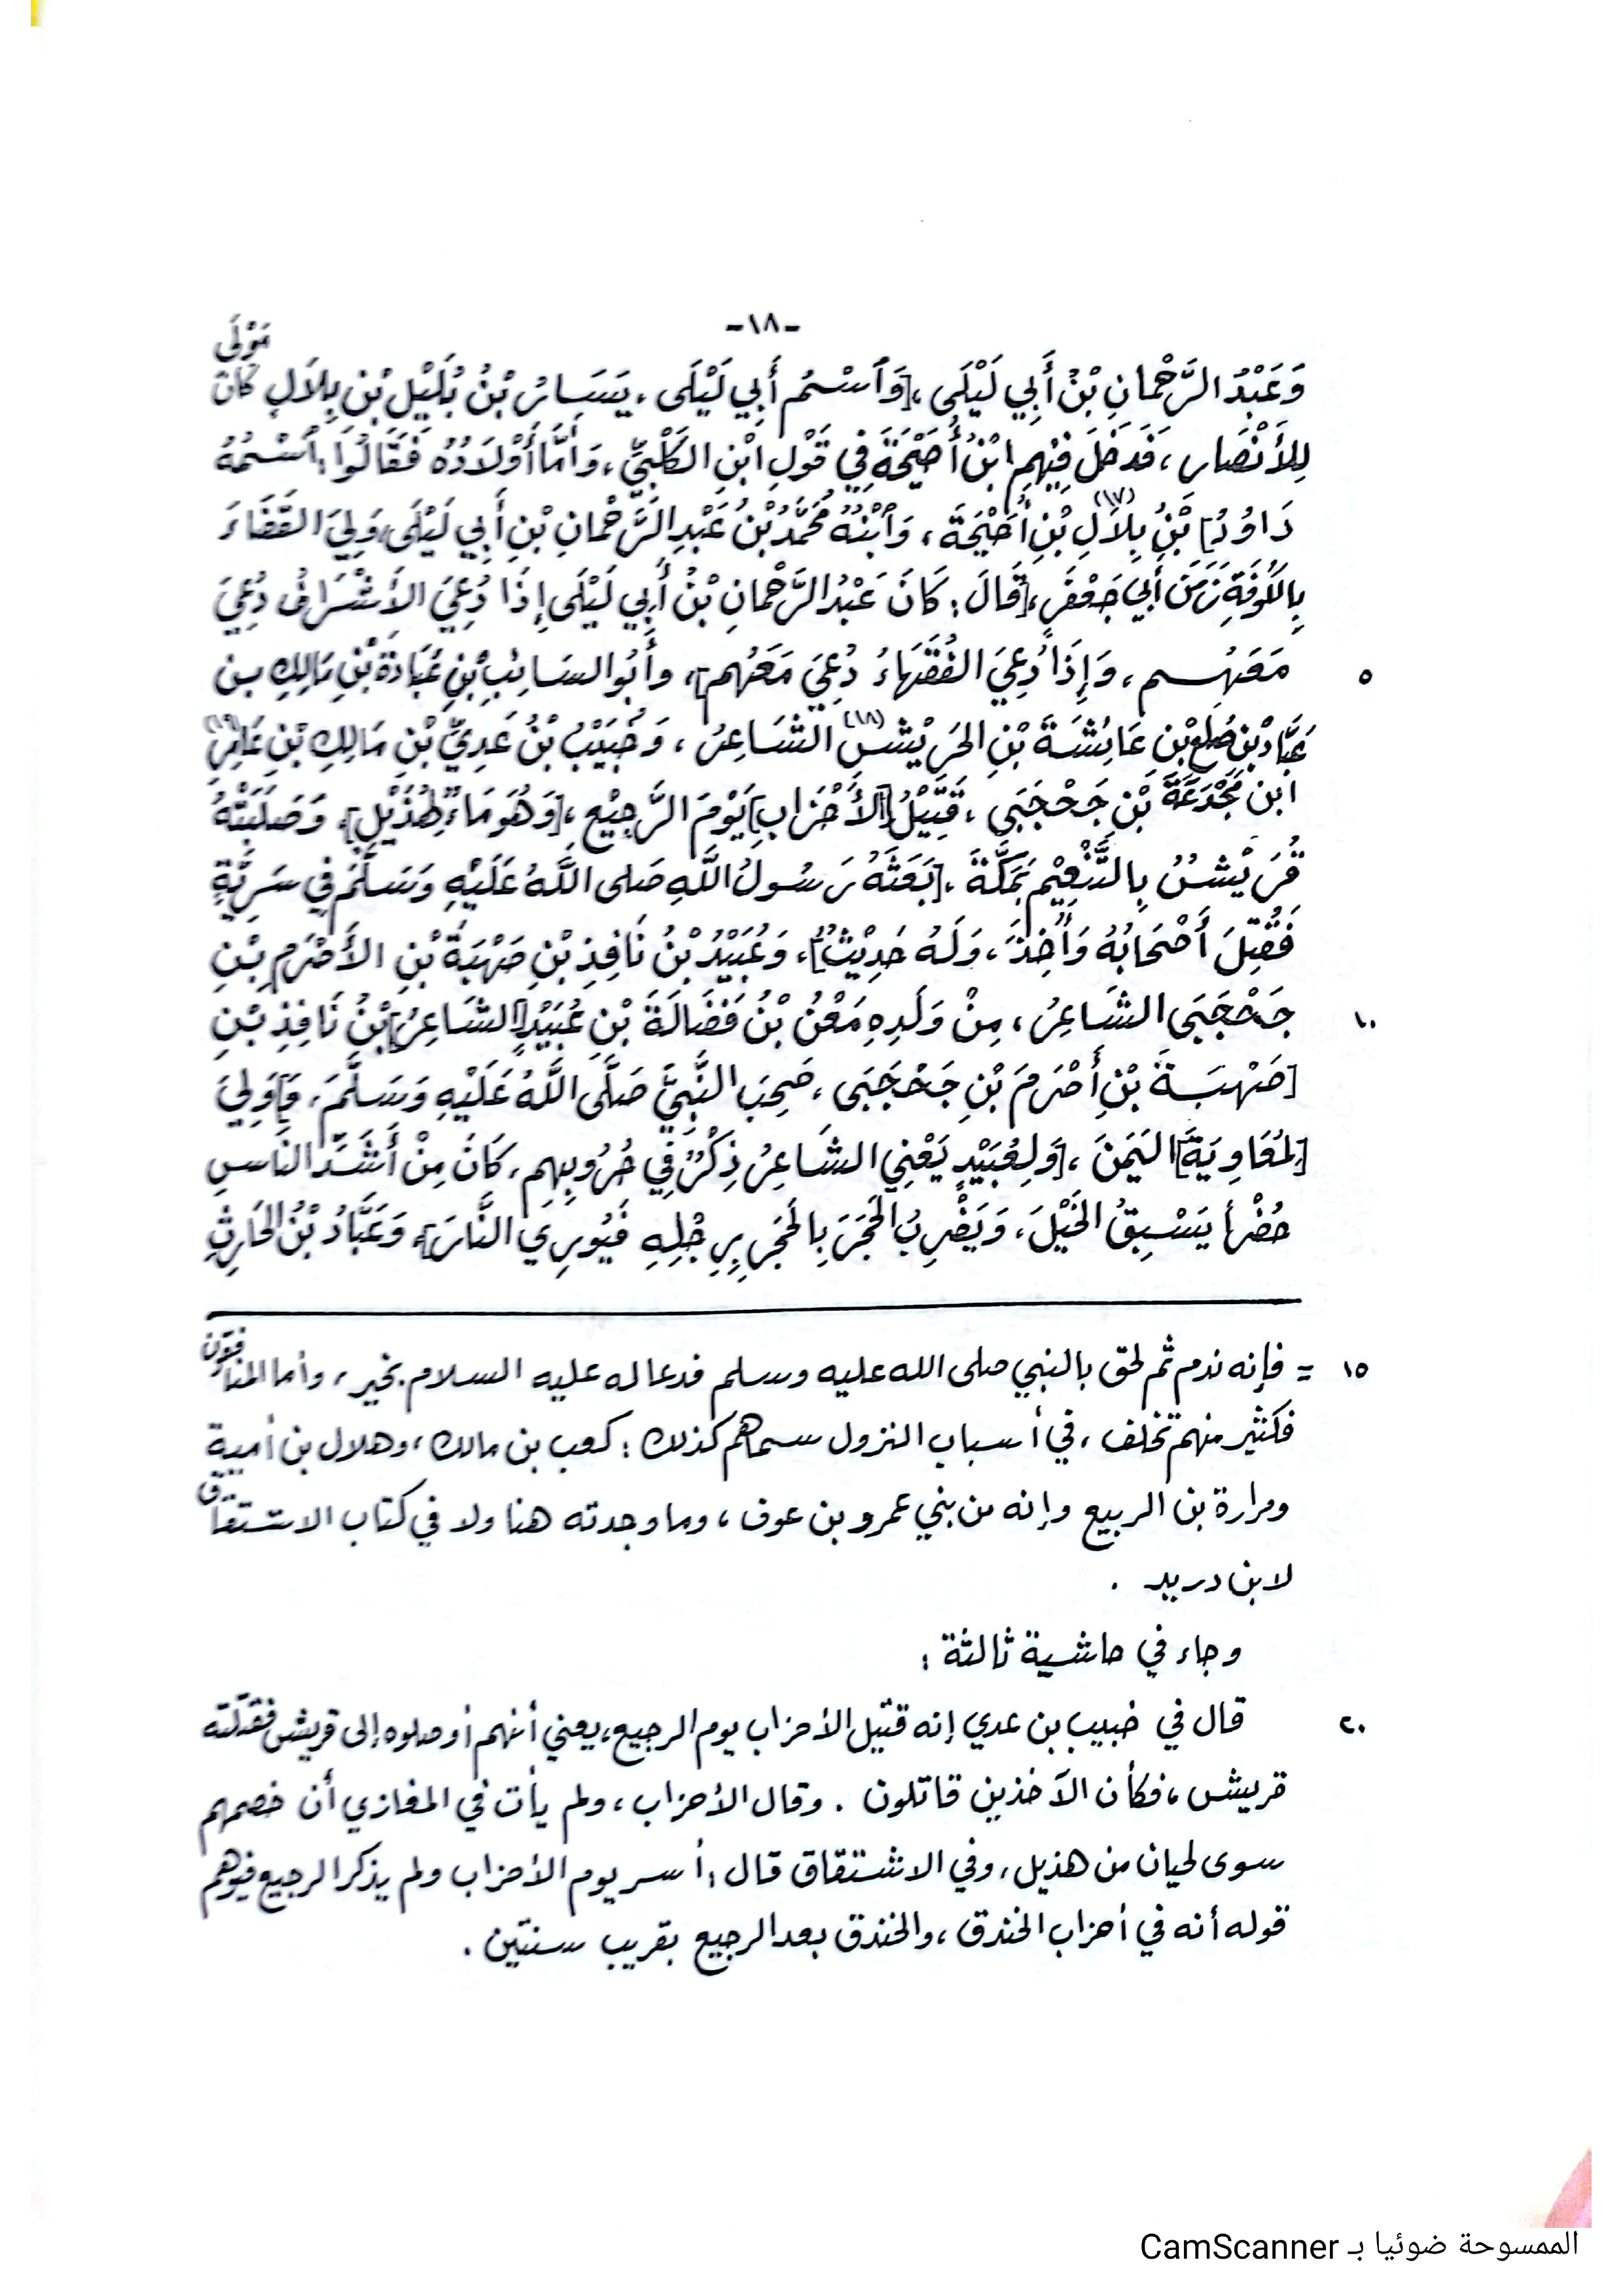 -١٨-
وَعَبْدُ الرَّحْمَانِ بْنُ أَبِي لَيْلَى، [وَٱسْمُ أَبِي لَيْلَى، يَسَارُ بْنُ بُلَيْلِ بْنِ بِلاَلٍ كَانَ مَوْلَى
لِلأَنْصَارِ، فَدَخَلَ فِيْهِم ابْنُ أُحَيْحَةَ فِي قَوْلِ ابْنِ الكَلْبِيِّ، وَأَمَّا أَوْلاَدُهُ فَقَالُوا: ٱسْمُهُ
دَاوُدُ] بْنُ بِلاَلِ بْنِ أُحَيْحَةَ(١٧)، وَٱبْنُهُ مُحَمَّدُ بْنُ عَبْدِ الرَّحْمَانِ بْنِ أَبِي لَيْلَى، وَلِيَ القَضَاءَ
بِالكُوفَةِ زَمَنَ أَبِي جَعْفَرٍ، [قَالَ: كَانَ عَبْدُ الرَّحْمَانِ بْنُ أَبِي لَيْلَى إِذَا دُعِيَ الأَشْرَافُ دُعِيَ
مَعَهُم، وَإِذَا دُعِيَ الفُقَهَاءُ دُعِيَ مَعَهُم]، وأَبُو السَائِبِ بْنِ عُبَادَةَ بْنِ مَالِكِ بن ٥
عَبَّادْ بْنِ ضُلعِ بْنِ عَائِشَةَ بْنِ الحَرِيْشِ(١٨) الشَاعِرُ، وَخُبَيْبُ بْنُ عَدِيِّ بْنِ مَالِكِ بْنِ عَامِرِ(١٩)
ابْنِ مَجْدَعَةَ بْنِ جَحْجَبَى، قَتِيْلُ [الأَحْزَابِ] يَوْمَ الرَّجِيْعِ، [وَهُوَ مَاءٌ لِهُذَيْلٍ]، وَصَلَبَتْهُ
قُرَيْشُ بِالتَّنْعِيْمِ بِمَكَّةَ، [بَعَثَهُ رَسُولُ اللَّهِ صَلى اللَّهُ عَلَيْهِ وَسَلَّمَ فِي سَرِيَّةٍ
فَقُتِلَ أَصْحَابُهُ وَأُخِذَ، وَلَهُ حَدِيْثٌ]، وَعُبَيْدُ بْنُ نَافِذِ بْنِ صَهْبَةَ بْنِ الأَصْرَمِ بْنِ
جَحْجَبَى الشَاعِرُ، مِنْ وَلَدِهِ مَعْنُ بْنُ فَضَالَةَ بْنِ عُبَيْدٍ [الشَاعِرُ] بْنُ نَافِذِ بْنِ ١٠
[صَهْبَةَ بْنِ أَصْرَمَ بْنِ جَحْجَبَى، صَحِبَ النَّبِيَّ صَلَّى اللَّهُ عَلَيْهِ وَسَلَّمَ، وَ] وَلِيَ
[لِمُعَاوِيَةَ] اليَمَنَ، [وَلِعُبَيْدٍ يَعْنِي الشَاعِرُ ذِكْرٌ فِي حُرُوبِهِم، كَانَ مِنْ أَشَدِّ النَاسِ
حُضْراً يَسْبِقُ الخَيْلَ، وَيَضْرِبُ الحَجَرَ بِالحَجَرِ بِرِجْلِهِ فَيُورِي النَّارَ]، وَعَبَّادُ بْنُ الحَارِثِ
= فإنه ندم ثم لحق بالنبي صلى الله عليه وسلم فدعا له عليه السلام بخير، وأما المنافقون ١٥
فكثير منهم تخلف، في أسباب النزول سماهم كذلك: كعب بن مالك، وهلال بن أمية
ومرارة بن الربيع وإنه من بني عمرو بن عوف، وما وجدته هنا ولا في كتاب الاشتقاق
لابن دريد .
وجاء في حاشية ثالثة :
قال في خبيب بن عدي إنه قتيل الأحزاب يوم الرجيع، يعني أنهم أوصلوه إلى قريش فقتلته ٢٠
قريش، فكأن الآخذين قاتلون . وقال الأحزاب، ولم يأت في المغازي أن خصمهم
سوى لحيان من هذيل، وفي الاشتقاق قال: أسر يوم الأحزاب ولم يذكر الرجيع فيوهم
قوله أنه في أحزاب الخندق، والخندق بعد الرجيع بقريب سنتين .
الممسوحة ضوئيا بـ CamScanner